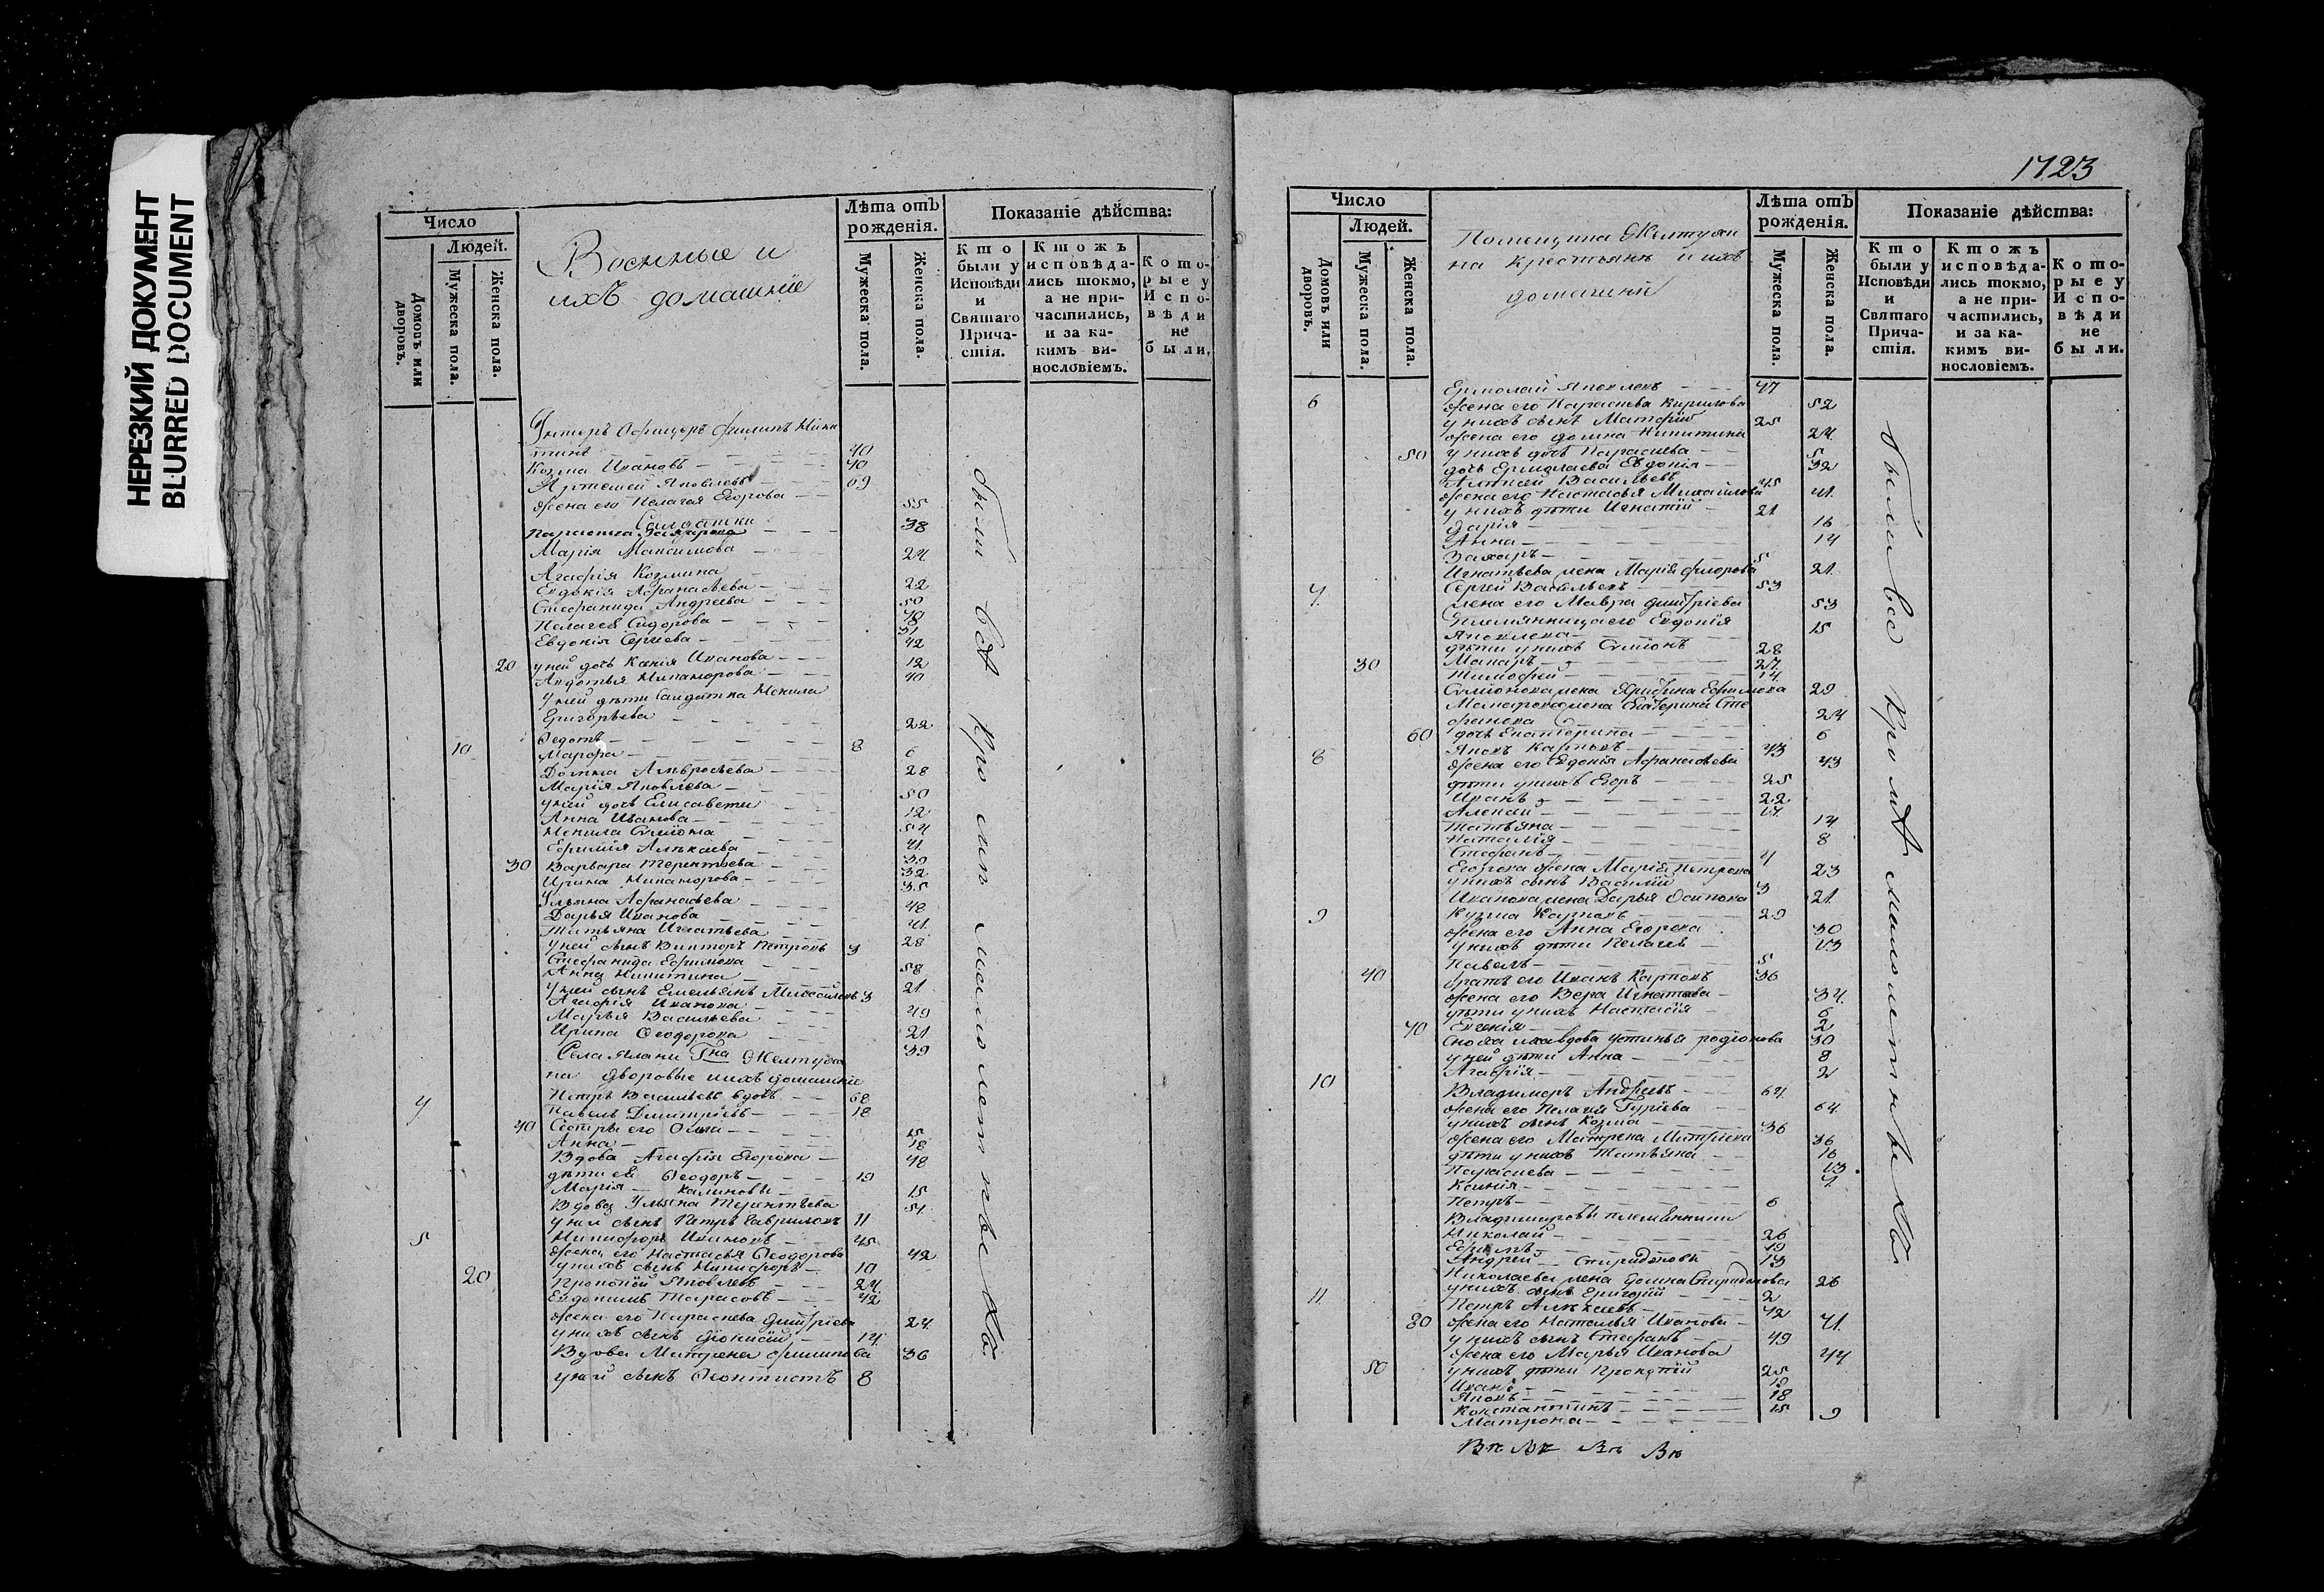 НЕРЕЗКИЙ ДОКУМЕНТ
BLURRED DOCUMENT
Число
Людей.
Домовъ или дворовъ.
Мужеска пола.
Женска пола.
Военные и
ихъ домашніе
Лѣта отъ
рожденія.
Мужеска пола.
Женска пола.
Показаніе дѣйства:
Кто были у Исповѣди и Святаго Причастія.
Ктожъ исповѣдались токмо, а не причастились, и за какимъ винословіемъ.
Которые у Исповѣди не были.
Унтеръ Офицеръ Филипъ Ники
тинъ 40
Козма Ивановъ 40
Артемей Яковлевъ 69
Жена его Пелагея Егорова 55
Солдатки
Параскева Захарова 38
Марія Максимова 24
Агафія Козмина 22
Евдокія Афанасьева 50
Стефанида Андреева 48
Пелагея Сидорова 31
Евдокія Сергеева 42
20 у ней дочь Ксенія Иванова 12
Авдотья Никанорова 40
У ней дѣти Салдатка Неонила
Григорьева 22
10 Федотъ 8
Марфа 6
Домна Амвросьева 28
Марія Яковлева 50
у ней дочь Елисавета 12
Анна Иванова 54
Ненила Семіонова 41
Ефимія Алексеева 39
30 Варвара Терентьева 32
Ирина Никанорова 35
Ульяна Афанасьева 48
Дарья Иванова 41
Татьяна Игнатьева 28
У ней сынъ Викторъ Петровъ 3
Стефанида Ефимова 58
Анна Никитина 21
У ней сынъ Емельянъ Михайловъ 3
Агафія Иванова 49
Марья Васильева 21
Ирина Феодорова 39
Села Яланы Гна Желтухи
на дворовые и ихъ домашніе
4 Петръ Васильевъ вдовъ 68
Павелъ Дмитріевъ 18
40 Сестры его Ольга 15
Анна 18
Вдова Агафія Егорова 48
дѣти ея Феодоръ 19
Марія Калиновы 15
Вдова Ульяна Терентьева 51
у ней сынъ Петръ Гавриловъ 11
5 Никифоръ Ивановъ 45
Жена его Настасья Феодорова 42
у нихъ сынъ Никифоръ 10
20 Прокопій Яковлевъ 24
Евдокимъ Тарасовъ 42
Жена его Параскева Дмитріева 24
у нихъ сынъ Діонисій 14
Вдова Матрена Филипова 36
у ней сынъ Феоктистъ 8
были всѣ кромѣ малолетнѣхъ
1723
Число
Людей.
Домовъ или дворовъ.
Мужеска пола.
Женска пола.
Помещика Желтухи
на крестьянъ и ихъ
домашніи
Лѣта отъ
рожденія.
Мужеска пола.
Женска пола.
Показаніе дѣйства:
Кто были у Исповѣди и Святаго Причастія.
Ктожъ исповѣдались токмо, а не причастились, и за какимъ винословіемъ.
Которые у Исповѣди не были.
6 Ермолай Яковлевъ 47
Жена его Параскева Кирилова 52
у нихъ сынъ Матфій 25
Жена его Домна Никитина 24
50 у нихъ дочь Параскева 5
дочь Ермолаева Евдокія 32
Алексей Васильевъ 45
Жена его Настасья Михайлова 41
у нихъ дѣти Игнатій 21
Дарія 16
Анна 14
Захаръ 5
Игнатьева жена Марія Фиорова 21
7 Сергей Васильевъ 53
жена его Мавра Дмитріева 53
Племянница его Евдокія
Яковлева 15
дѣти у нихъ Симіонъ 28
30 Макаръ 27
Тимофей 14
Симіонова жена Ефимова 29
Макарова жена Екатерина Сте
фанова 24
60 дочь Екатерина 6
8 Яковъ Карповъ 43
Жена его Евдокія Афанасьева 43
дѣти у нихъ Егоръ 25
Иванъ 22
Алексей 17
Татьяна 14
Наталія 8
Стефанъ 4
Егорова жена Марія Петрова 23
у нихъ сынъ Василій 3
Иванова жена Дарья Осипова 21
9 Кузма Карповъ 29
жена его Анна Егорова 30
у нихъ дѣти Пелагея 13
Павелъ 5
40 братъ его Иванъ Карповъ 36
жена его Вера Игнатьева 34
дѣти у нихъ Настасія 6
70 Евгенія 2
Сноха ихъ вдова Устинья Родіонова 30
у ней дѣти Анна 8
Агафія 2
10 Владимеръ Андреевъ 64
жена его Пелагея Гуріева 64
у нихъ сынъ Козма 36
Жена его Матрена Митріева 36
дѣти у нихъ Татьяна 16
Параскева 13
Ксинія 4
Петръ 6
Владимировы племянники
Николай 26
Ефимъ 19
Андрей Спиридоновы 13
Николаева жена Домна Спиридонова 26
у нихъ сынъ Григорій 2
11 Петръ Алексеевъ 42
80 жена его Наталья Иванова 41
у нихъ сынъ Стефанъ 49
жена его Марья Иванова 44
50 у нихъ дѣти Прокопій 25
Иванъ 19
Яковъ 18
Константинъ 15
Матрона 9
были все кромѣ малолетнѣхъ